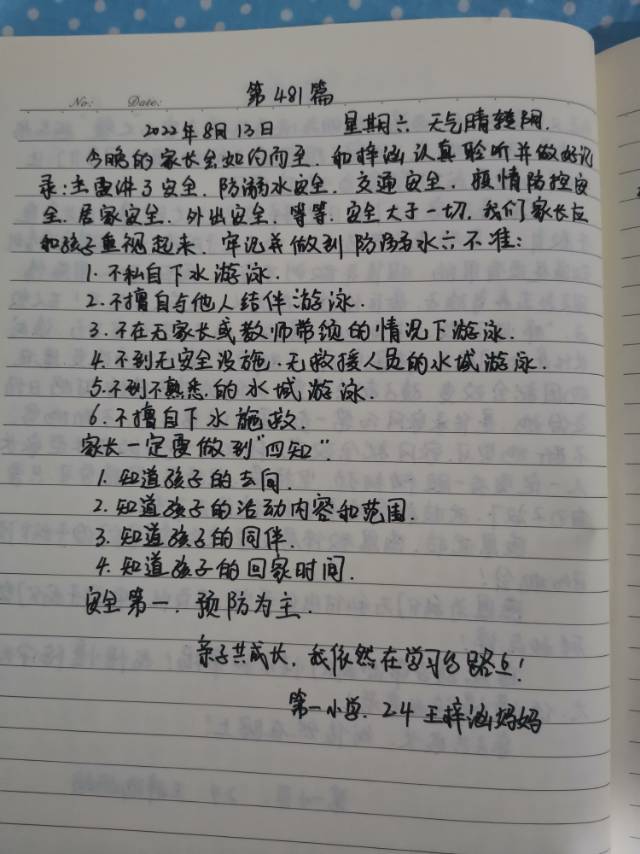 第481篇
No: Date:
2022年8月13日 星期六 天气晴转阴.
今晚的家长会如约而至.和梓涵认真聆听并做好记
录:主要讲了安全.防溺水安全.交通安全.疫情防控安
全.居家安全.外出安全.等等.安全大于一切.我们家长应
和孩子重视起来.牢记并做到防溺水六不准:
1.不私自下水游泳.
2.不擅自与他人结伴游泳.
3.不在无家长或教师带领的情况下游泳.
4.不到无安全设施.无救援人员的水域游泳.
5.不到不熟悉的水域游泳.
6.不擅自下水施救.
家长一定要做到"四知".
1.知道孩子的去向.
2.知道孩子的活动内容和范围.
3.知道孩子的同伴.
4.知道孩子的回家时间.
安全第一.预防为主.
亲子共成长,我依然在学习的路上!
第一小学.24王梓涵妈妈